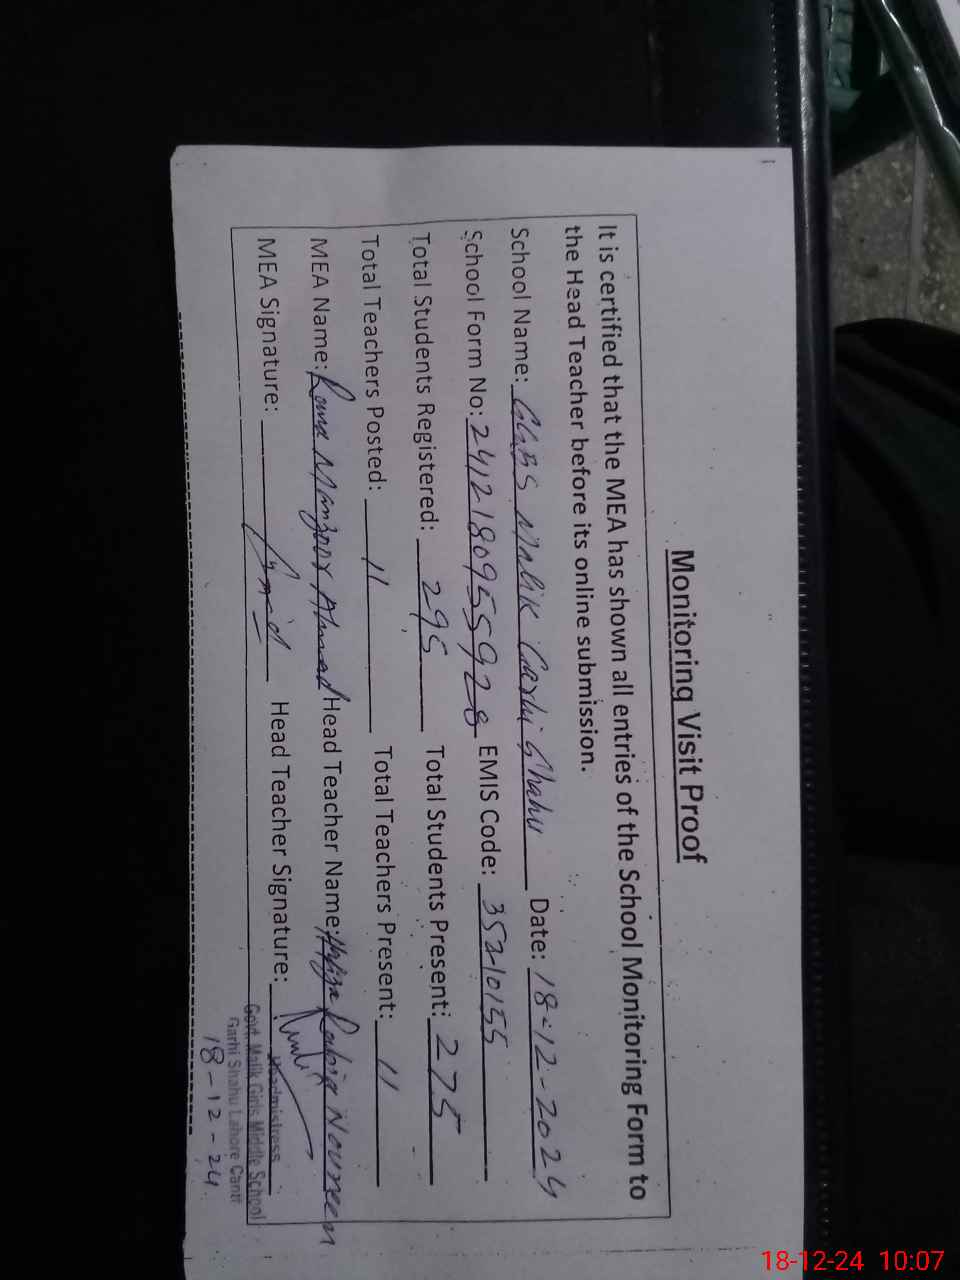 Monitoring Visit Proof
It is certified that the MEA has shown all entries of the School Monitoring Form to
the Head Teacher before its online submission.
School Name: GGES Malik Garhi Shahu Date: 18-12-2024
School Form No: 2412180955928 EMIS Code: 35210155
Total Students Registered: 295 Total Students Present: 275
Total Teachers Posted: 11 Total Teachers Present: 11
MEA Name: Rana Manzoor Ahmad Head Teacher Name: Hafiza Rabia Noureen
MEA Signature: Head Teacher Signature:
Headmistress
Govt. Malik Girls Middle School
Garhi Shahu Lahore Cantt
18-12-24
18-12-24 10:07